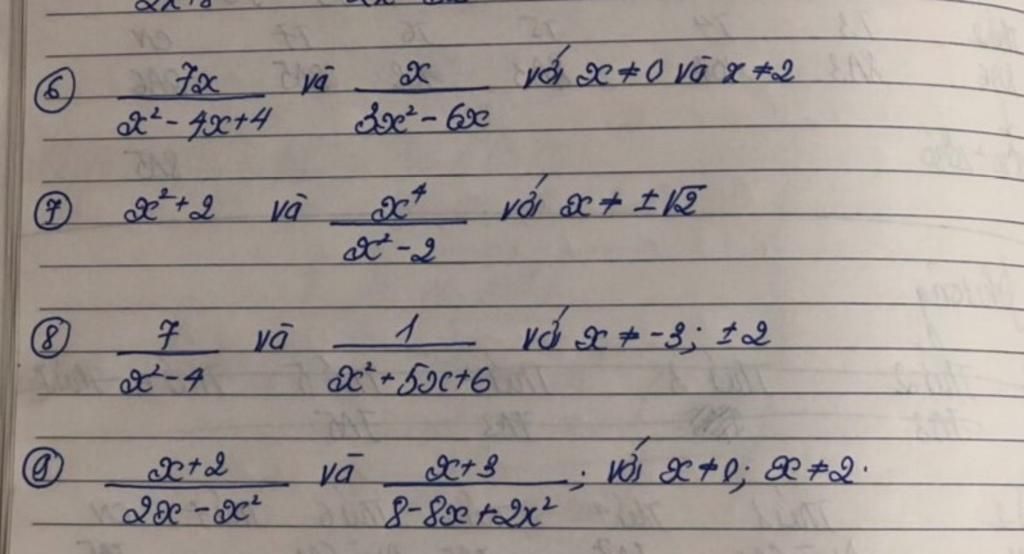 ⑥ 7x/(x² - 4x + 4) và x/(3x² - 6x) với x ≠ 0 và x ≠ 2
⑦ x² + 2 và x⁴/(x² - 2) với x ≠ ±√2
⑧ 7/(x² - 4) và 1/(x² + 5x + 6) với x ≠ -3; ±2
⑨ (x + 2)/(2x - x²) và (x + 3)/(8 - 8x + 2x²); với x ≠ 0; x ≠ 2.